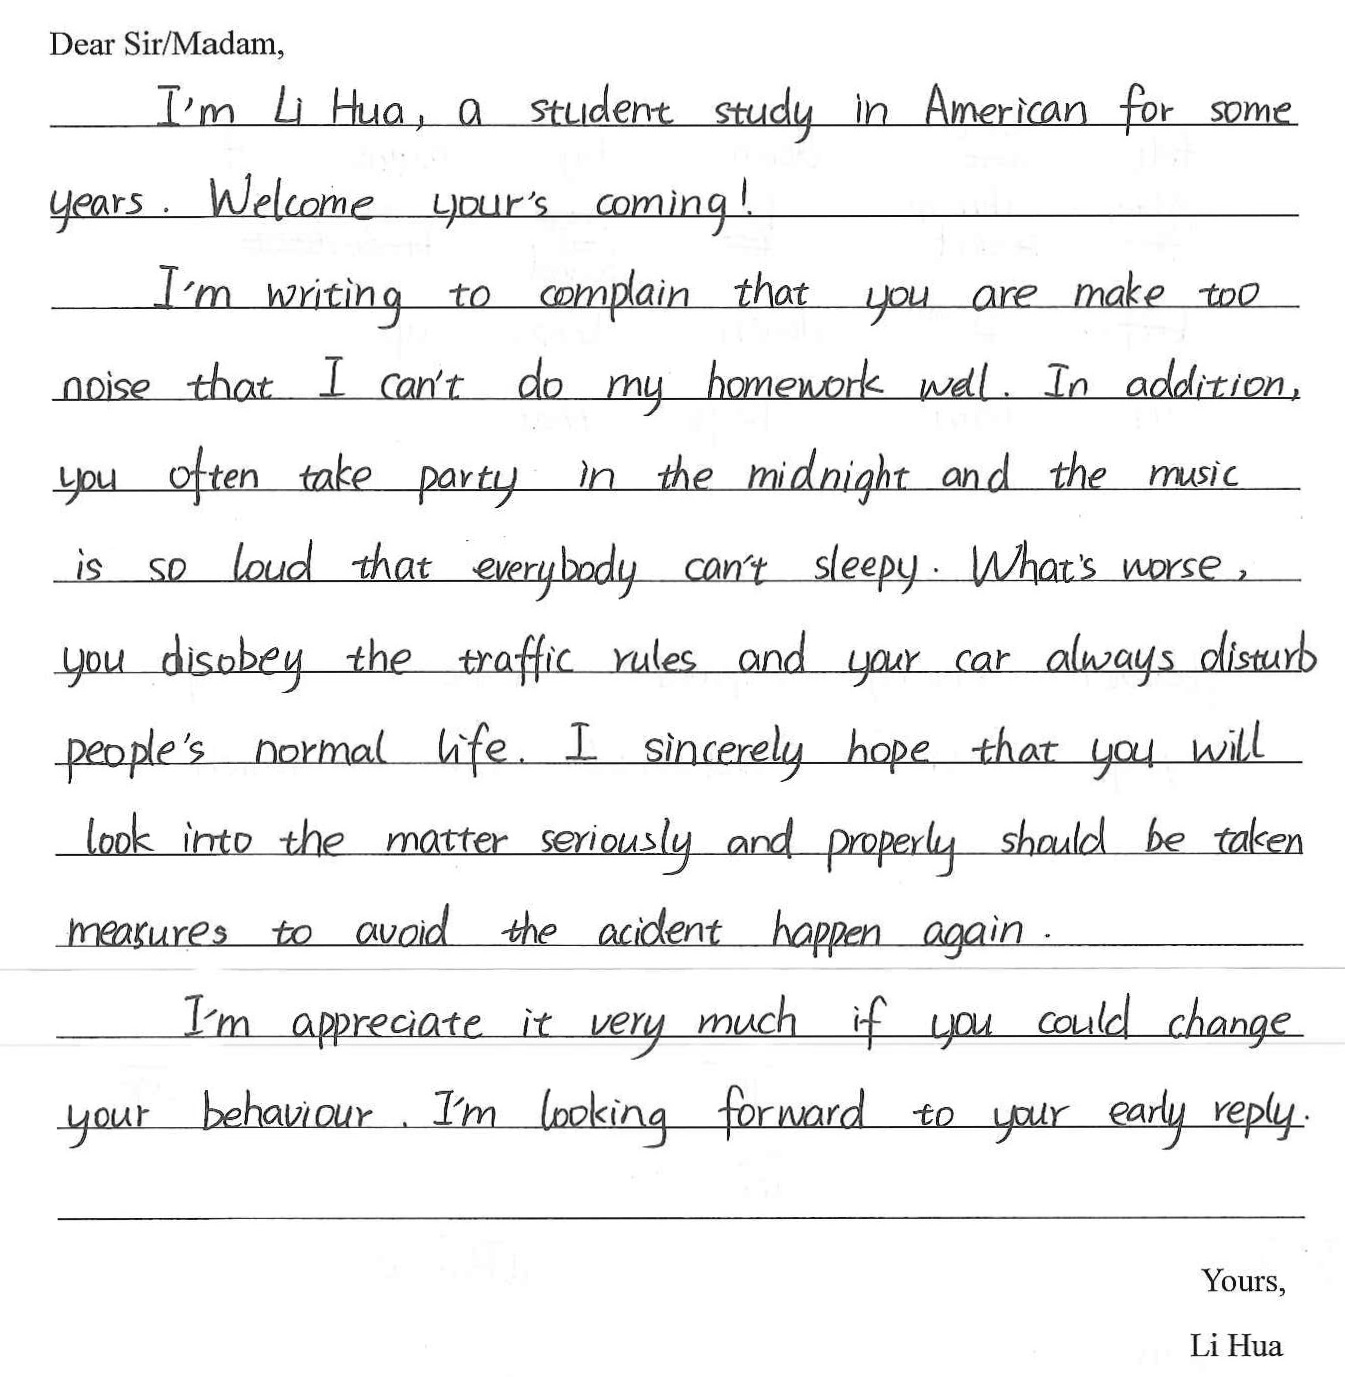 Dear Sir/Madam,
I'm Li Hua, a student study in American for some
years. Welcome your's coming!
I'm writing to complain that you are make too
noise that I can't do my homework well. In addition,
you often take party in the midnight and the music
is so loud that everybody can't sleepy. What's worse,
you disobey the traffic rules and your car always disturb
people's normal life. I sincerely hope that you will
look into the matter seriously and properly should be taken
measures to avoid the acident happen again.
I'm appreciate it very much if you could change
your behaviour. I'm looking forward to your early reply.
Yours,
Li Hua